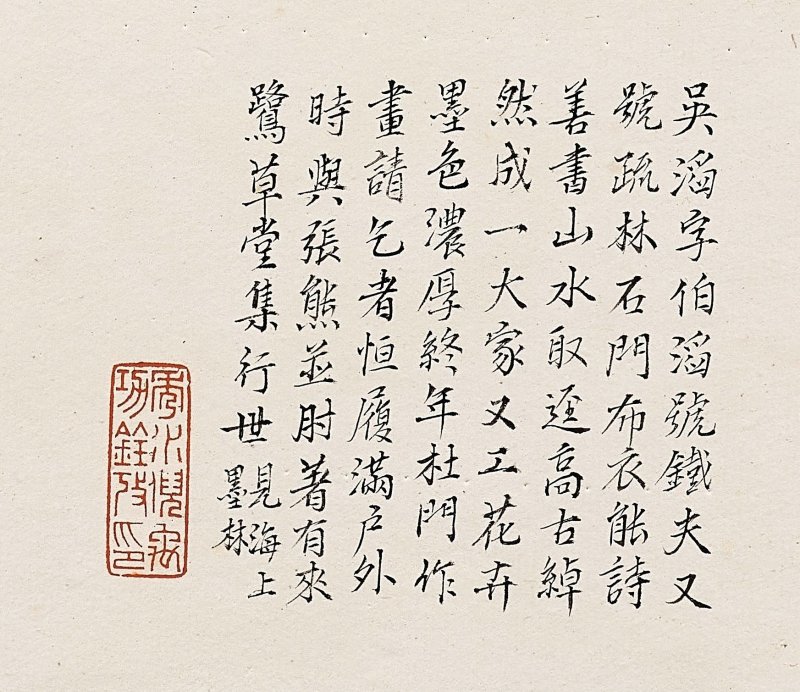 吳滔字伯滔號鐵夫又
號疏林石門布衣能詩
善書山水取逕高古綽
然成一大家又工花卉
墨色濃厚終年杜門作
畫請乞者恒履滿戶外
時與張熊並肘著有來
鷺草堂集行世
見海上
墨林
秀水倪禹
功銓攷印